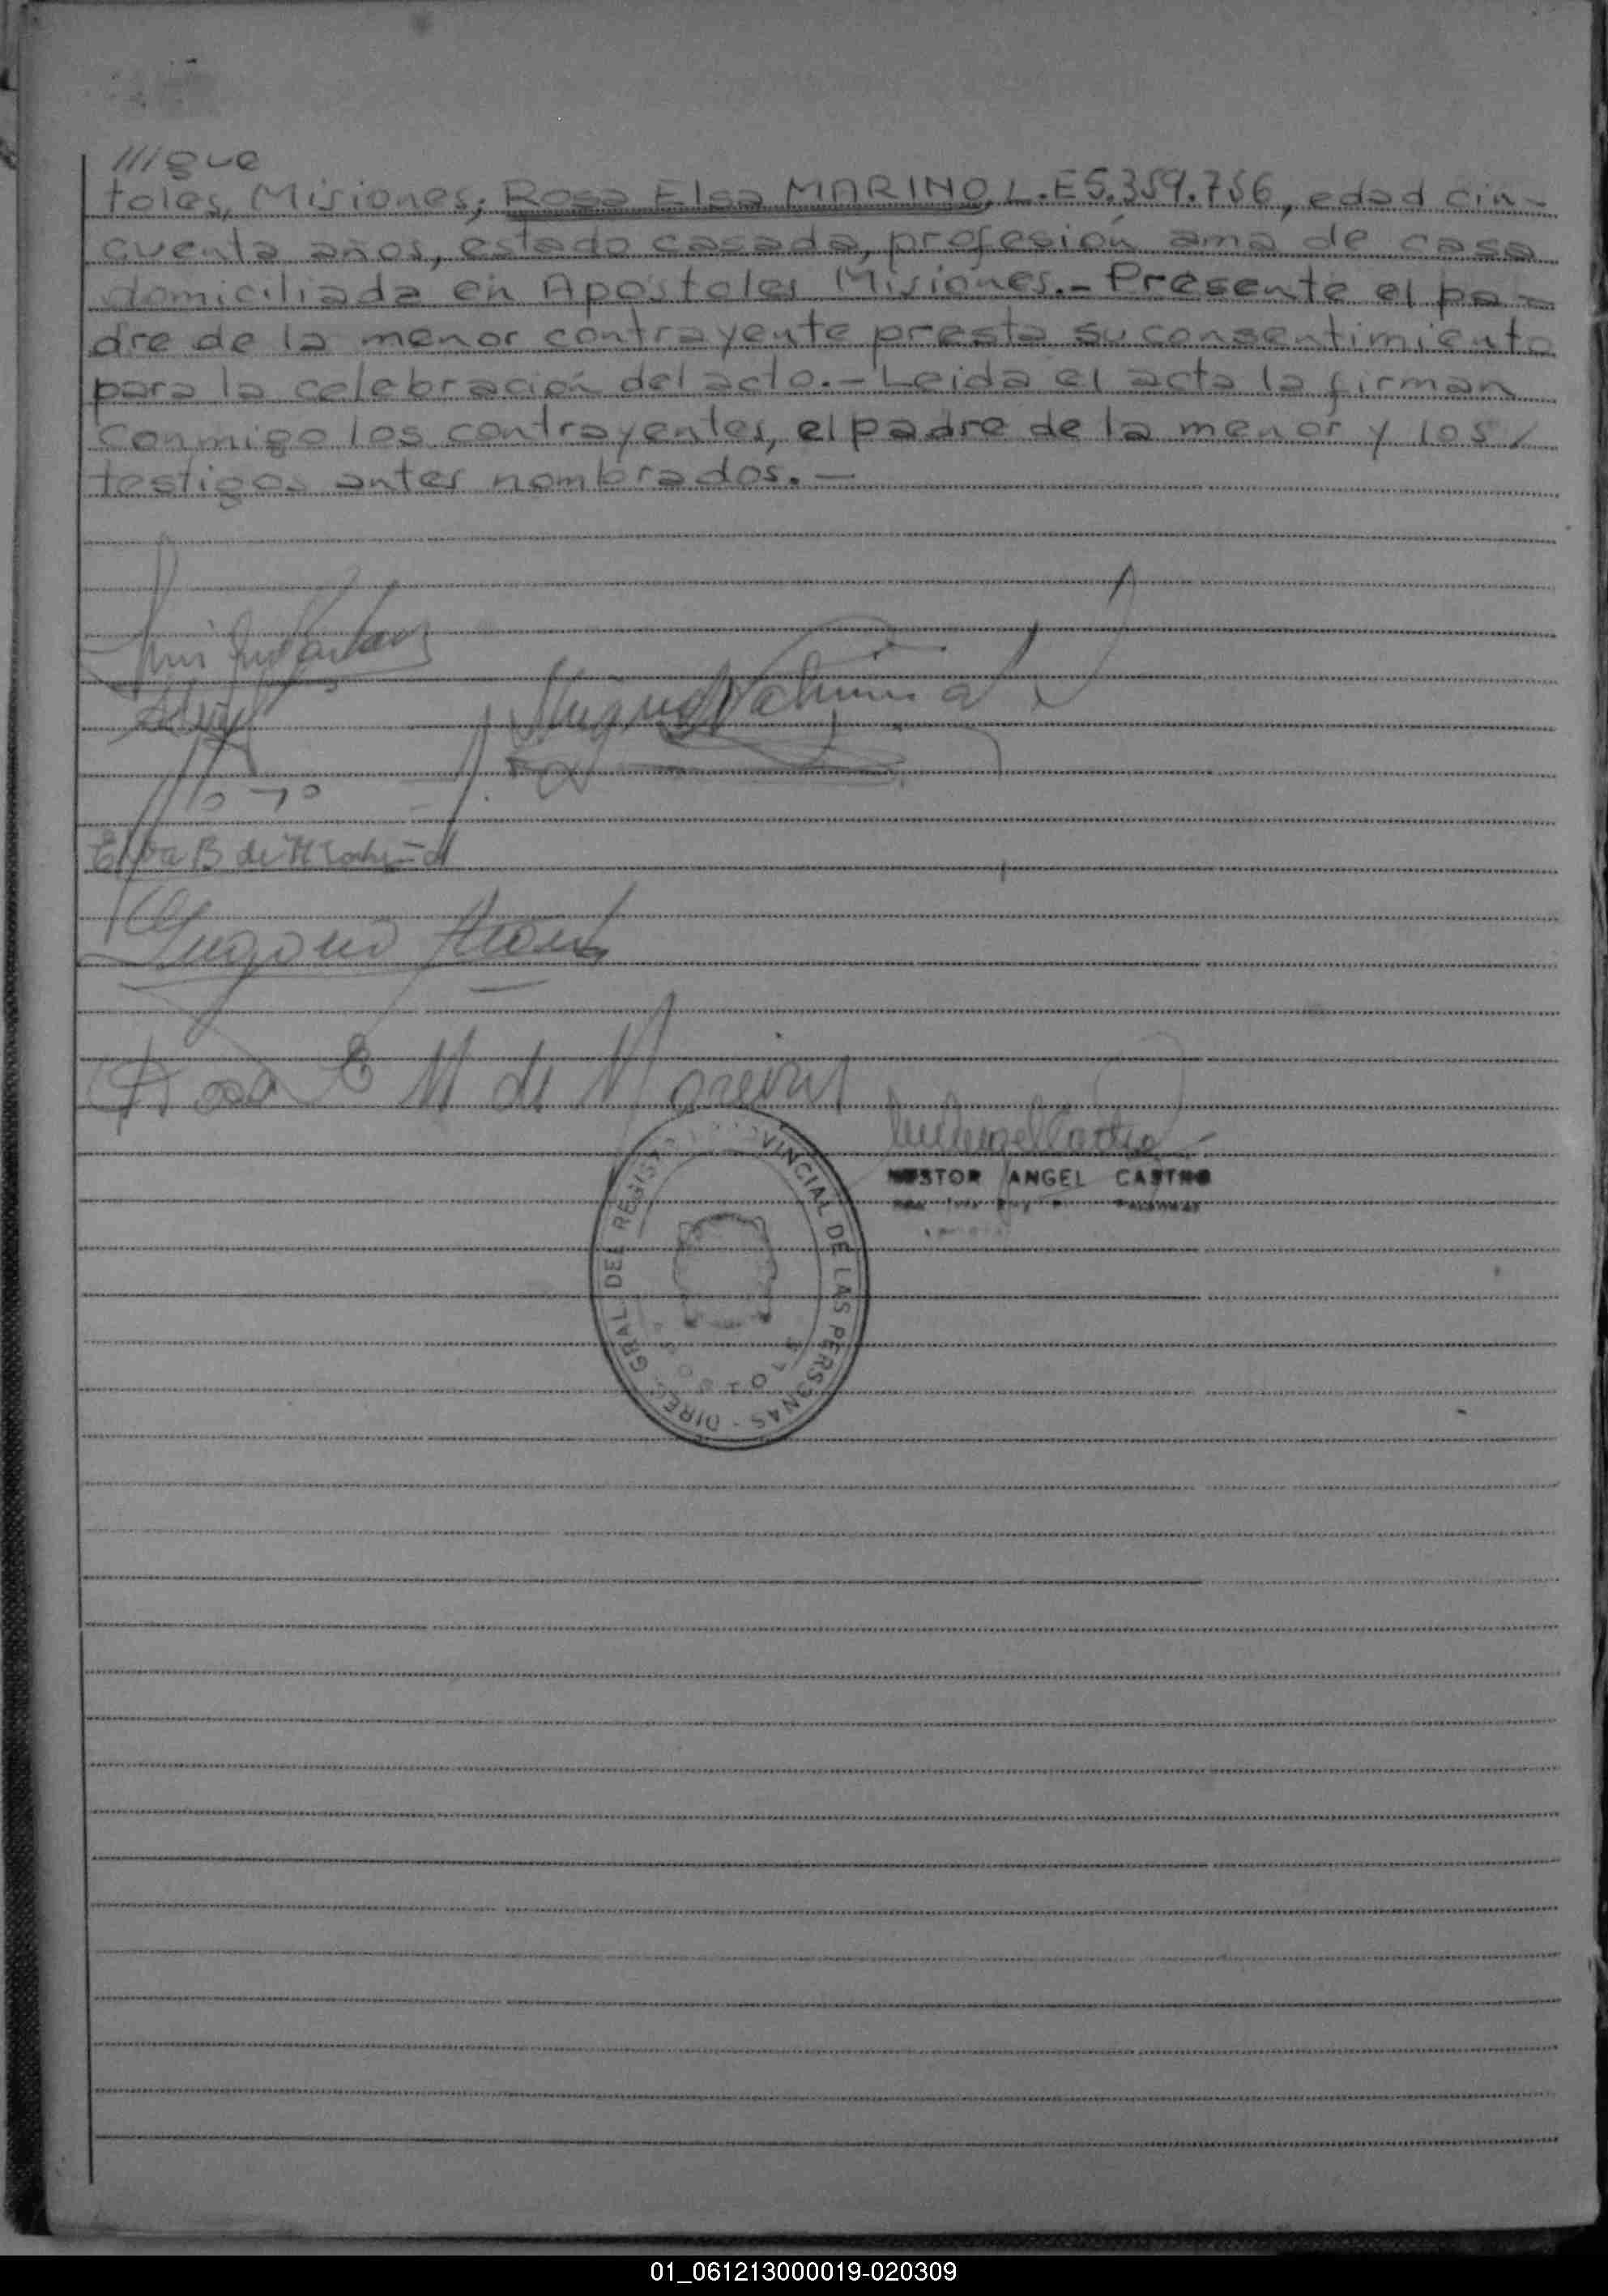 ///gue
toles, Misiones; Rosa Elsa MARINO, L.E5.359.756, edad cin-
cuenta años, estado casada, profesión ama de casa
domiciliada en Apóstoles Misiones.- Presente el pa-
dre de la menor contrayente presta su consentimiento
para la celebración del acto.- Leida el acta la firman
conmigo los contrayentes, el padre de la menor y los /
testigos antes nombrados.-
Rosa E M de
NESTOR ANGEL CASTRO
DIREC. GRAL. DEL REGISTRO PROVINCIAL DE LAS PERSONAS -
01_061213000019-020309